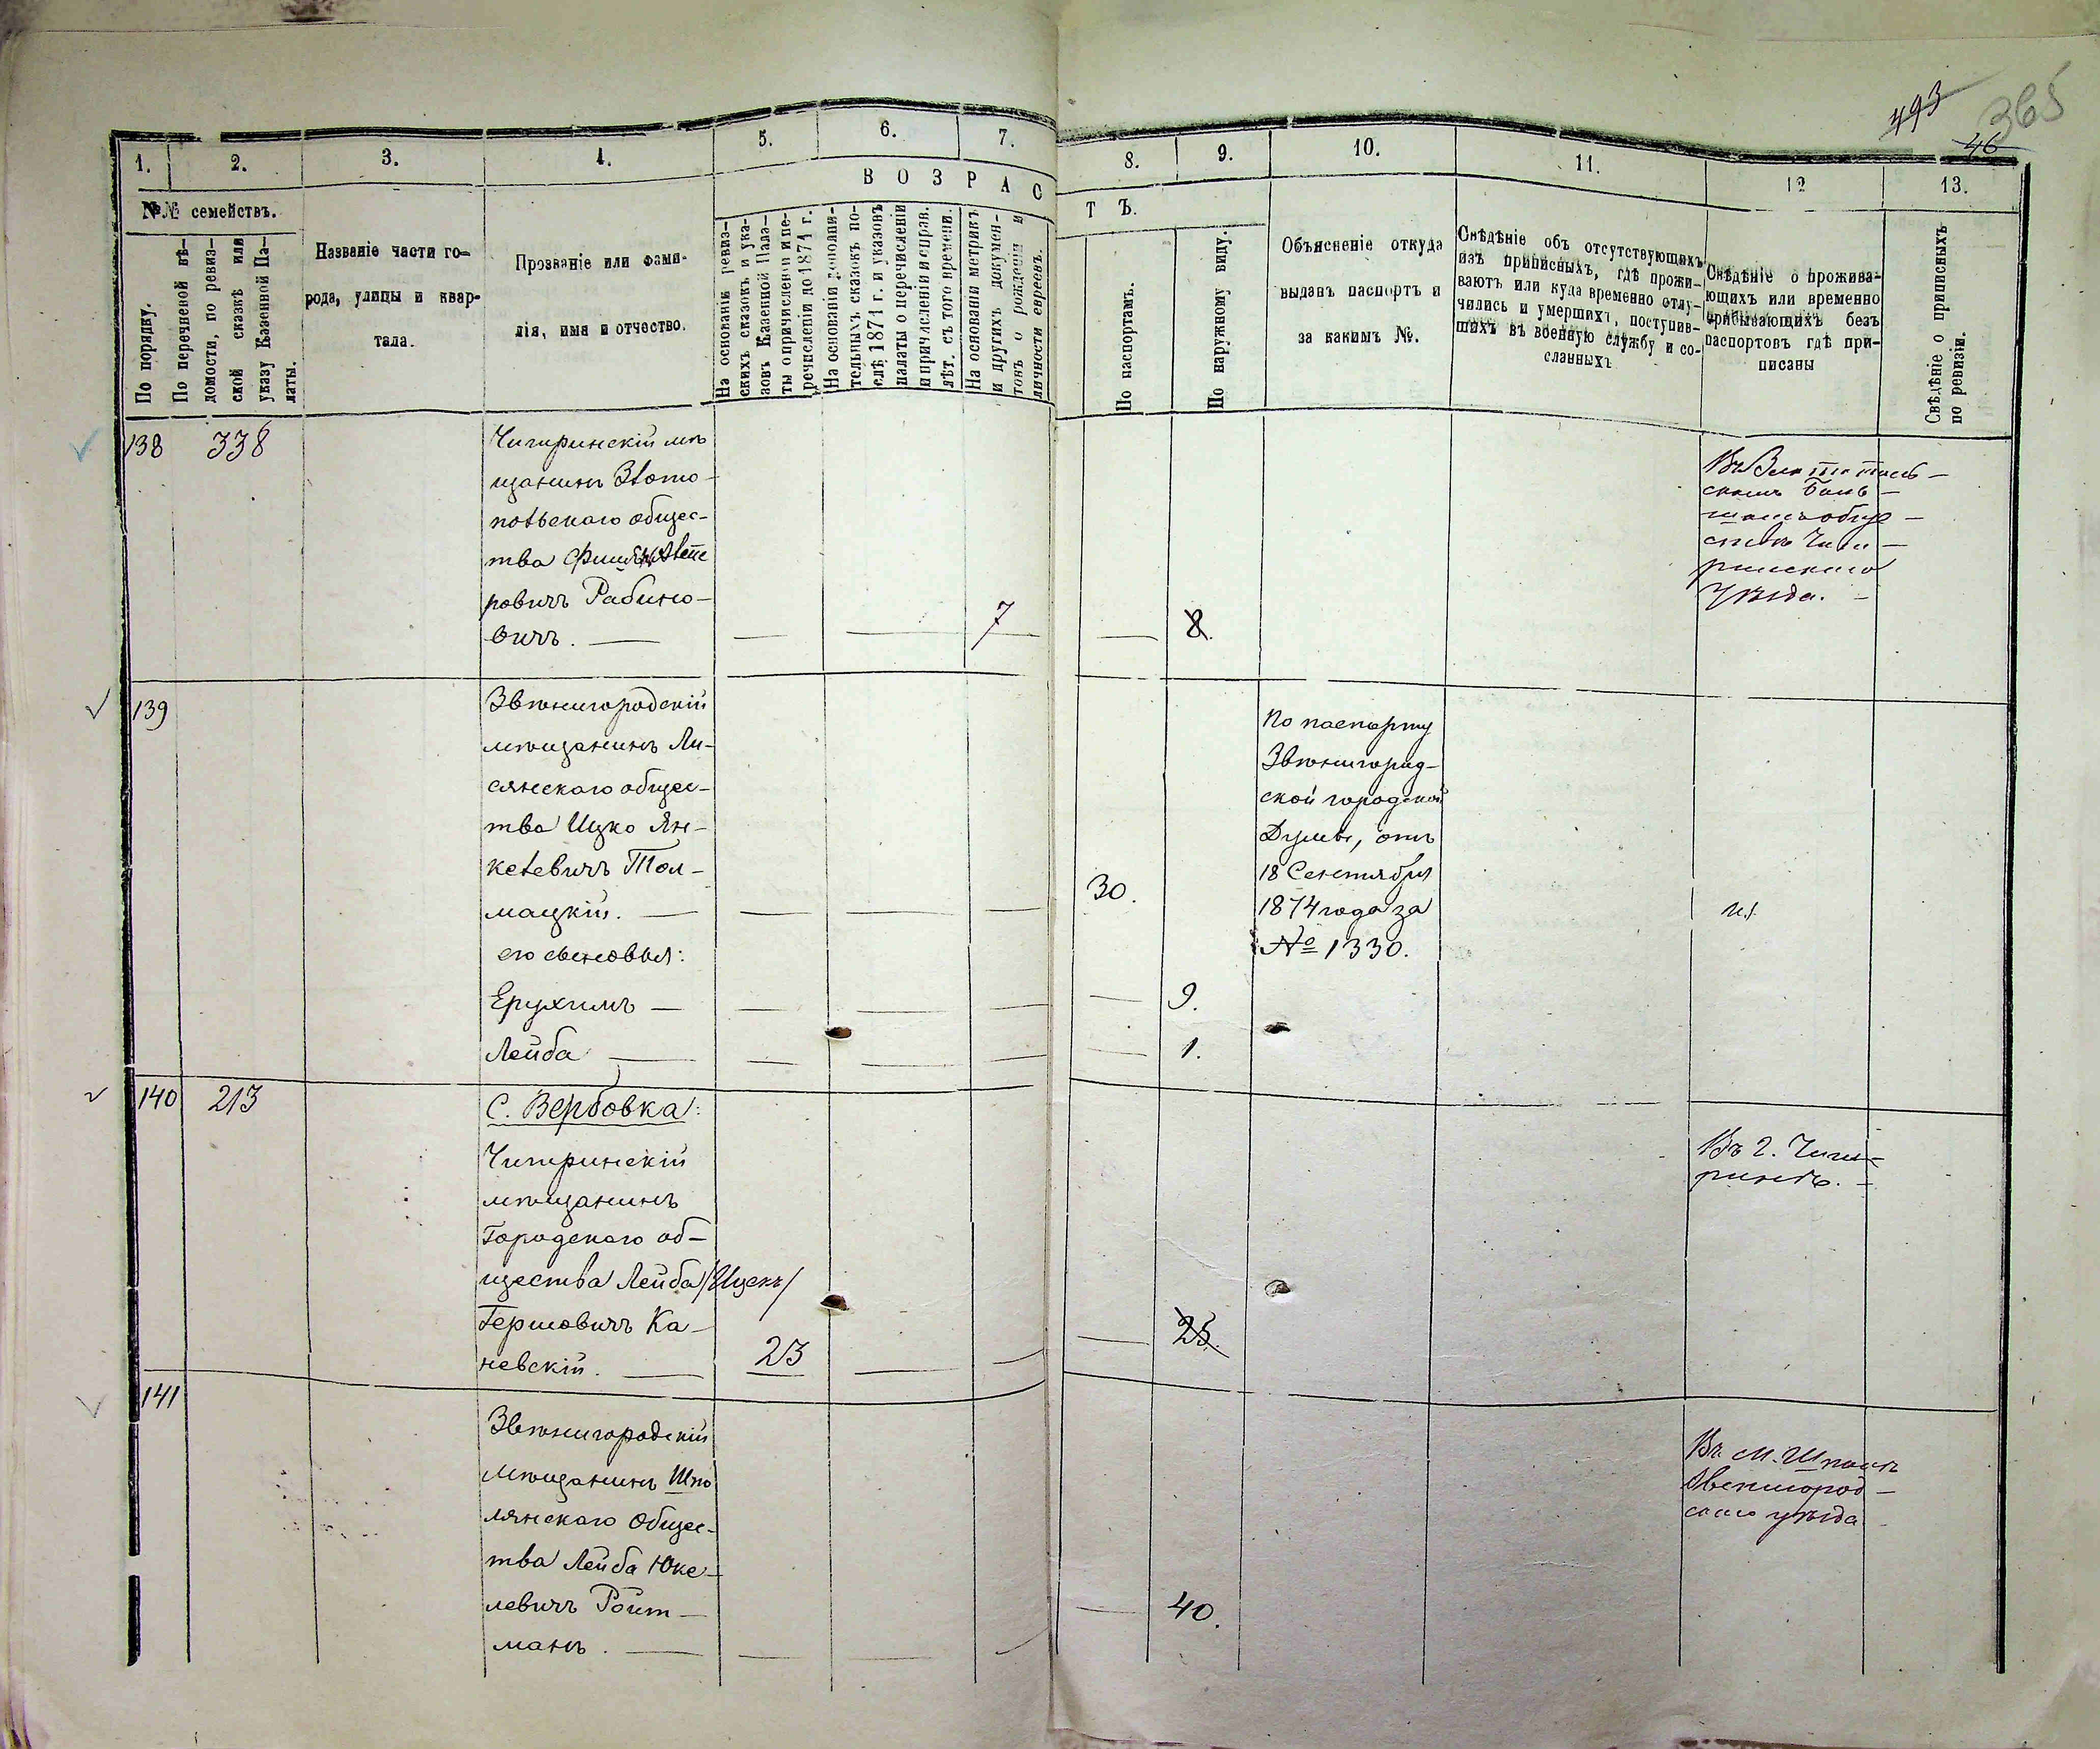 493
365
46
1.
2.
3.
4.
5.
6.
7.
8.
9.
10.
11.
12
13.
№№ семействъ.
ВОЗРАС
ТЪ.
По порядку.
По перечневой вѣ-
домости, по ревиз-
ской сказкѣ или
указу Казенной Па-
латы.
Названіе части го-
рода, улицы и квар-
тала.
Прозваніе или фами-
лія, имя и отчество.
На основаніи ревиз-
скихъ сказокъ и ука-
зовъ Казенной Пала-
ты о причисленіи и пе-
речисленіи до 1871 г.
На основаніи дополни-
тельныхъ сказокъ по-
слѣ 1871 г. и указовъ
палаты о перечисленіи
и причисленіи и справ.
лѣт. съ того времени.
На основаніи метрикъ
и другихъ докумен-
товъ о рожденіи и
личности евреевъ.
По паспортамъ.
По наружному виду.
Объясненіе откуда
выданъ паспортъ и
за какимъ №.
Свѣдѣніе объ отсутствующихъ
изъ приписныхъ, гдѣ прожи-
ваютъ или куда временно отлу-
чились и умершихъ, поступив-
шихъ въ военную службу и со-
сланныхъ
Свѣдѣніе о прожива-
ющихъ или временно
пребывающихъ безъ
паспортовъ гдѣ при-
писаны
Свѣдѣніе о приписныхъ
по ревизіи.
138 338
Чигиринскій мѣ
щанинъ Злато-
польскаго общес-
тва
ровичъ Рабино-
вичъ. — 7 8.
скомъ
обще-
ствѣ Чиги-
ринскаго
Уѣзда.
139
Звѣнигородскій
мѣщанинъ Ли-
сянскаго общес-
тва Ицко Ян-
келевичъ Тол-
мацкій. — 30.
его сыновья:
Ерухимъ — 9.
Лейба — 1.
По паспорту
Звѣнигород-
ской городской
Думы, отъ
18 Сентября
1874 года за
№ 1330.
140 213
С. Вербовка:
Чигиринскій
мѣщанинъ
Городскаго об-
щества Лейба /Ицекъ/
Гершовичъ Ка-
невскій. — 23 25.
Въ г. Чиги-
ринѣ.
141
Звѣнигородскій
мѣщанинъ Шпо
лянскаго Общес-
тва Лейба Юке-
левичъ Ройт-
манъ. — 40.
Въ м. Шполѣ
Звенигород-
скаго уѣзда